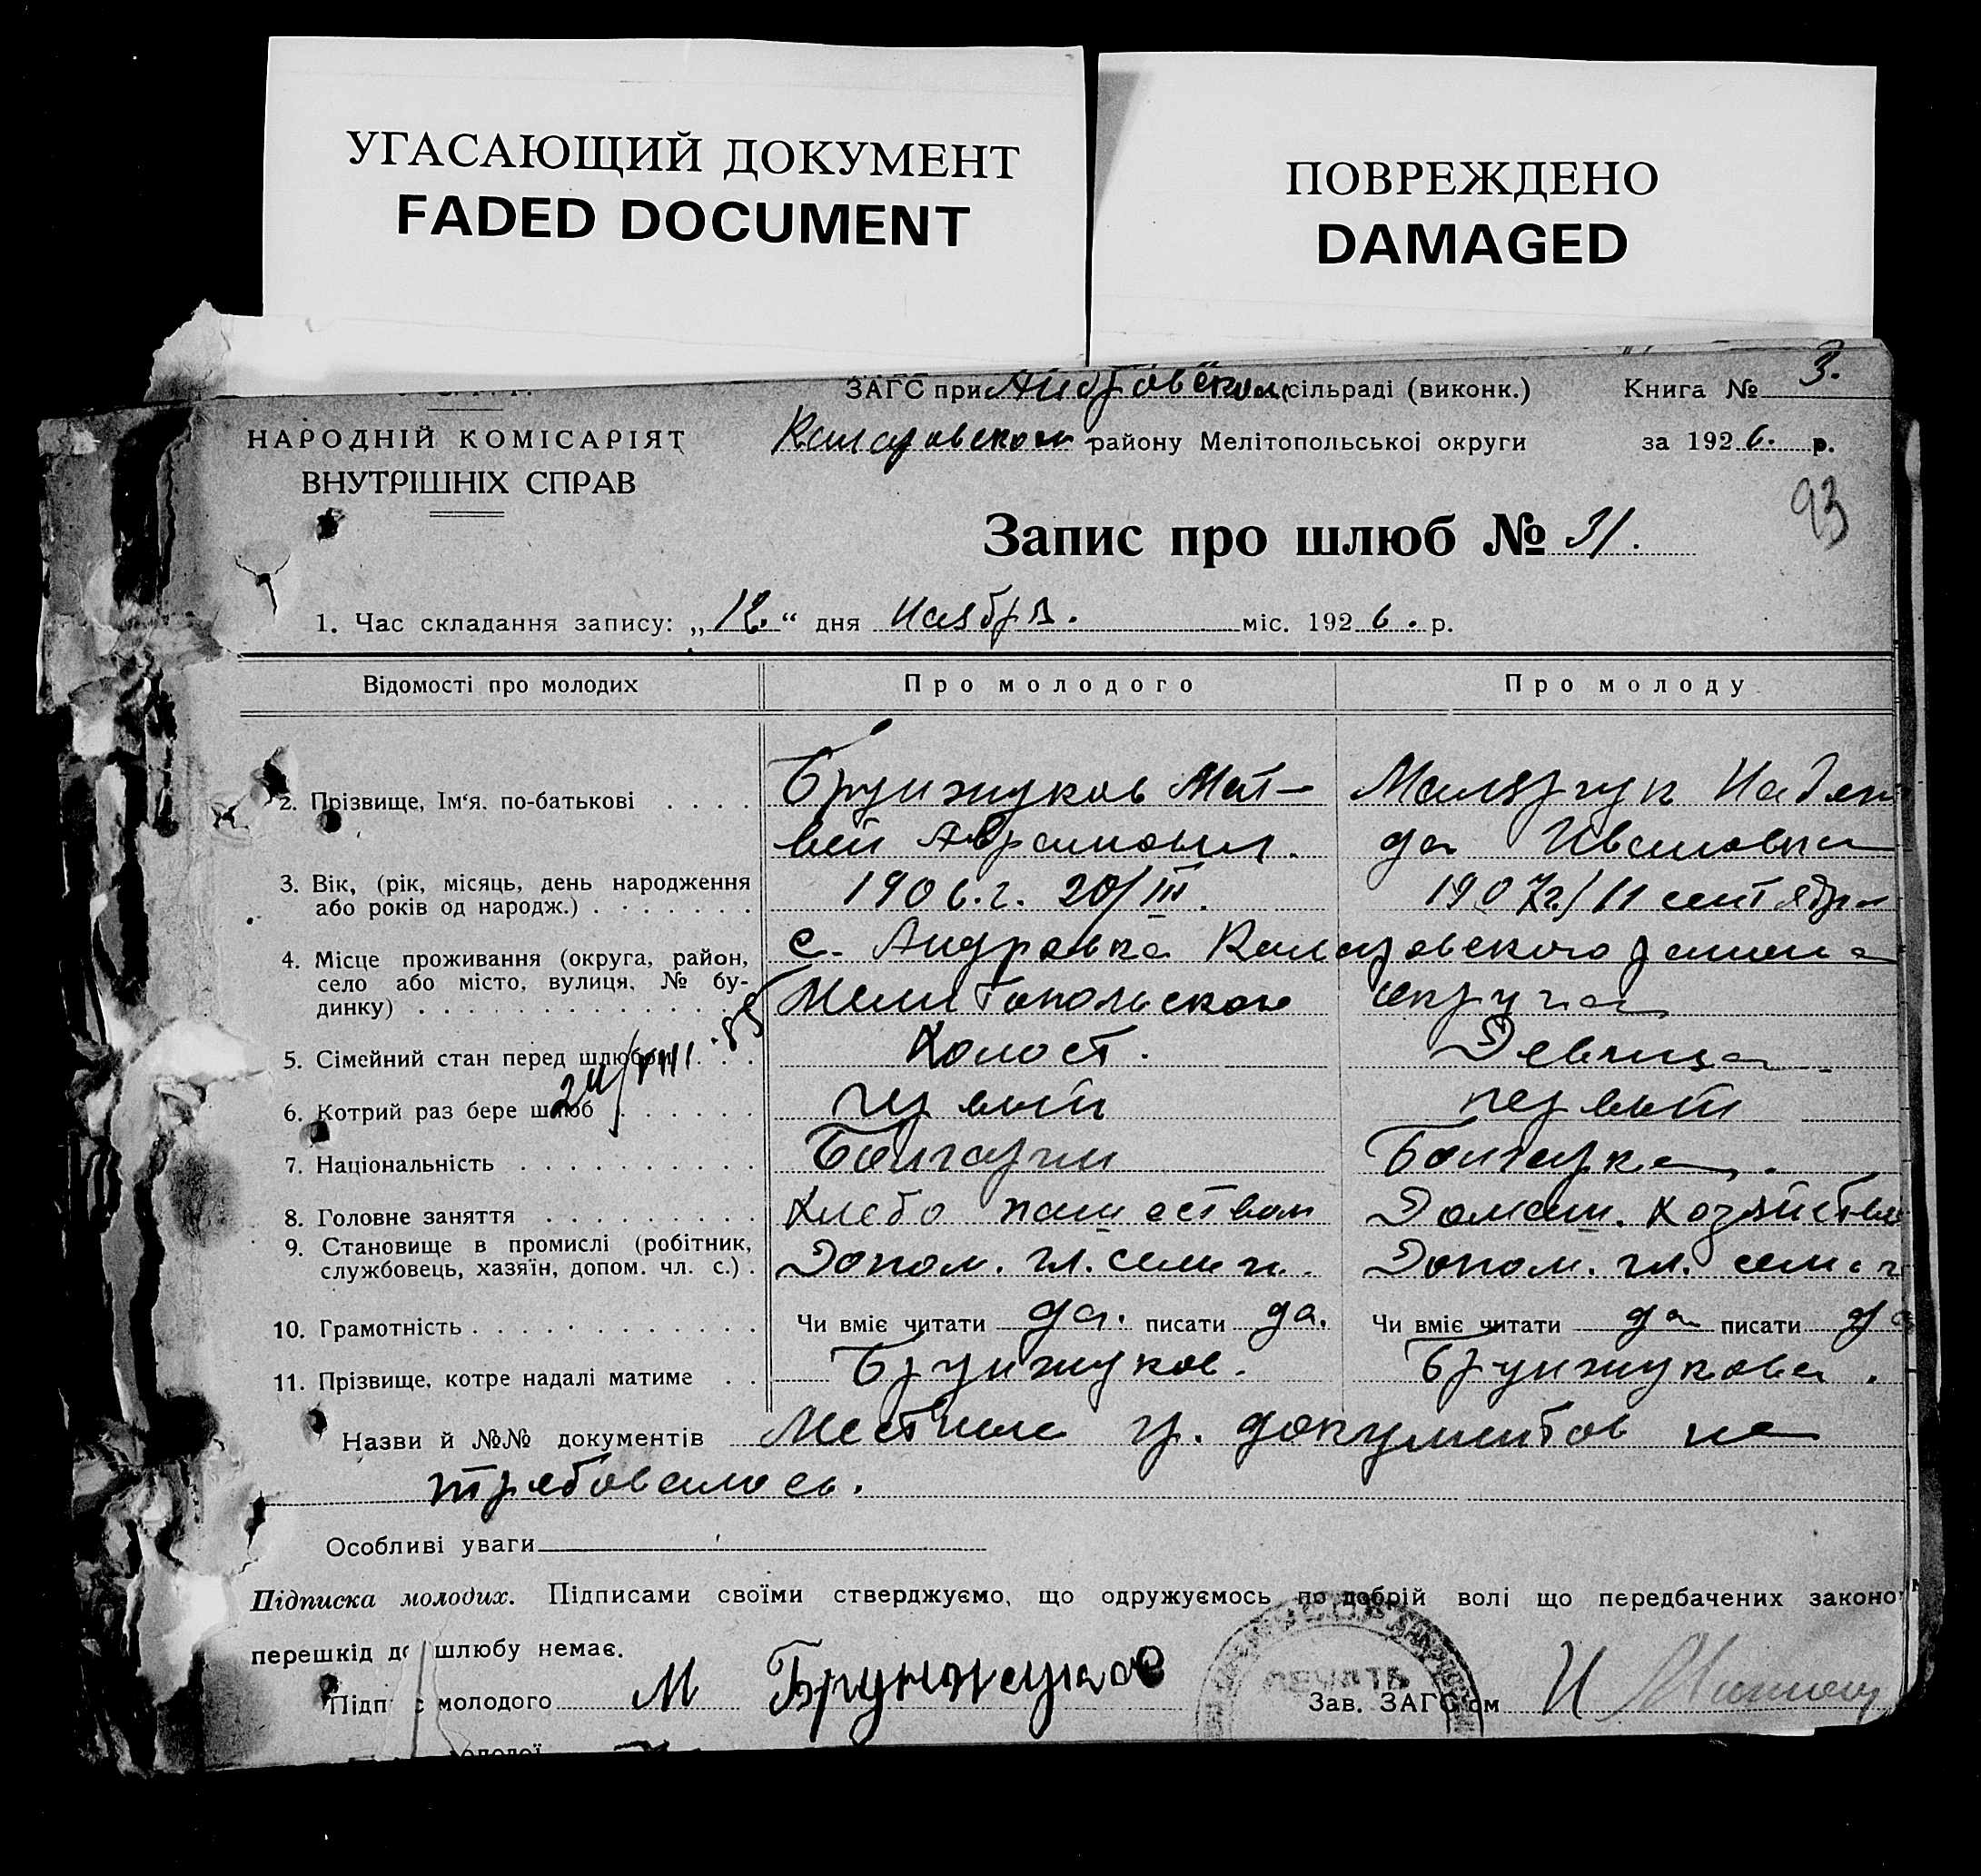 УГАСАЮЩИЙ ДОКУМЕНТ
FADED DOCUMENT
ПОВРЕЖДЕНО
DAMAGED
ЗАГС при Андровском сільраді (виконк.) Книга № 3.
НАРОДНІЙ КОМІСАРІЯТ
ВНУТРІШНІХ СПРАВ
Коларовском району Мелітопольської округи за 1926. р.
93
Запис про шлюб № 31.
1. Час складання запису: „12.“ дня Ноября. міс. 1926. р.
Відомості про молодих Про молодого Про молоду
2. Прізвище, Ім‘я. по-батькові . . . . Брунжуков Мат- Малярчук Надеж
вей Аврамович. да Ивановна
3. Вік, (рік, місяць, день народження 1906.г. 20/III. 1907г./11 сентября
або років од народж.) . . . . . . .
4. Місце проживання (округа, район, с. Андровка Коларовского района
село або місто, вулиця, № бу- Мелитопольского округа
динку) . . . . . . . . . . . . . .
5. Сімейний стан перед шлюбом . . . Холост. Девица
24/VIII
6. Котрий раз бере шлюб . . . . . . первый первый
7. Національність . . . . . . . . . . Болгарин Болгарка.
8. Головне заняття . . . . . . . . . Хлебопашеством Домаш. хозяйство
9. Становище в промислі (робітник, Допом. гл. семьи. Допом. гл. семьи
службовець, хазяїн, допом. чл. с.) .
10. Грамотність . . . . . . . . . . . . Чи вміє читати да. писати да. Чи вміє читати да писати да
11. Прізвище, котре надалі матиме . . Брунжуков. Брунжукова.
Назви й №№ документів Местные гр. документов не
требовалось.
Особливі уваги
Підписка молодих. Підписами своїми стверджуємо, що одружуємось по добрій волі що передбачених законо
перешкід до шлюбу немає.
ПЕЧАТЬ
Підпис молодого М Брунжуков Зав. ЗАГС‘ом И
молодої